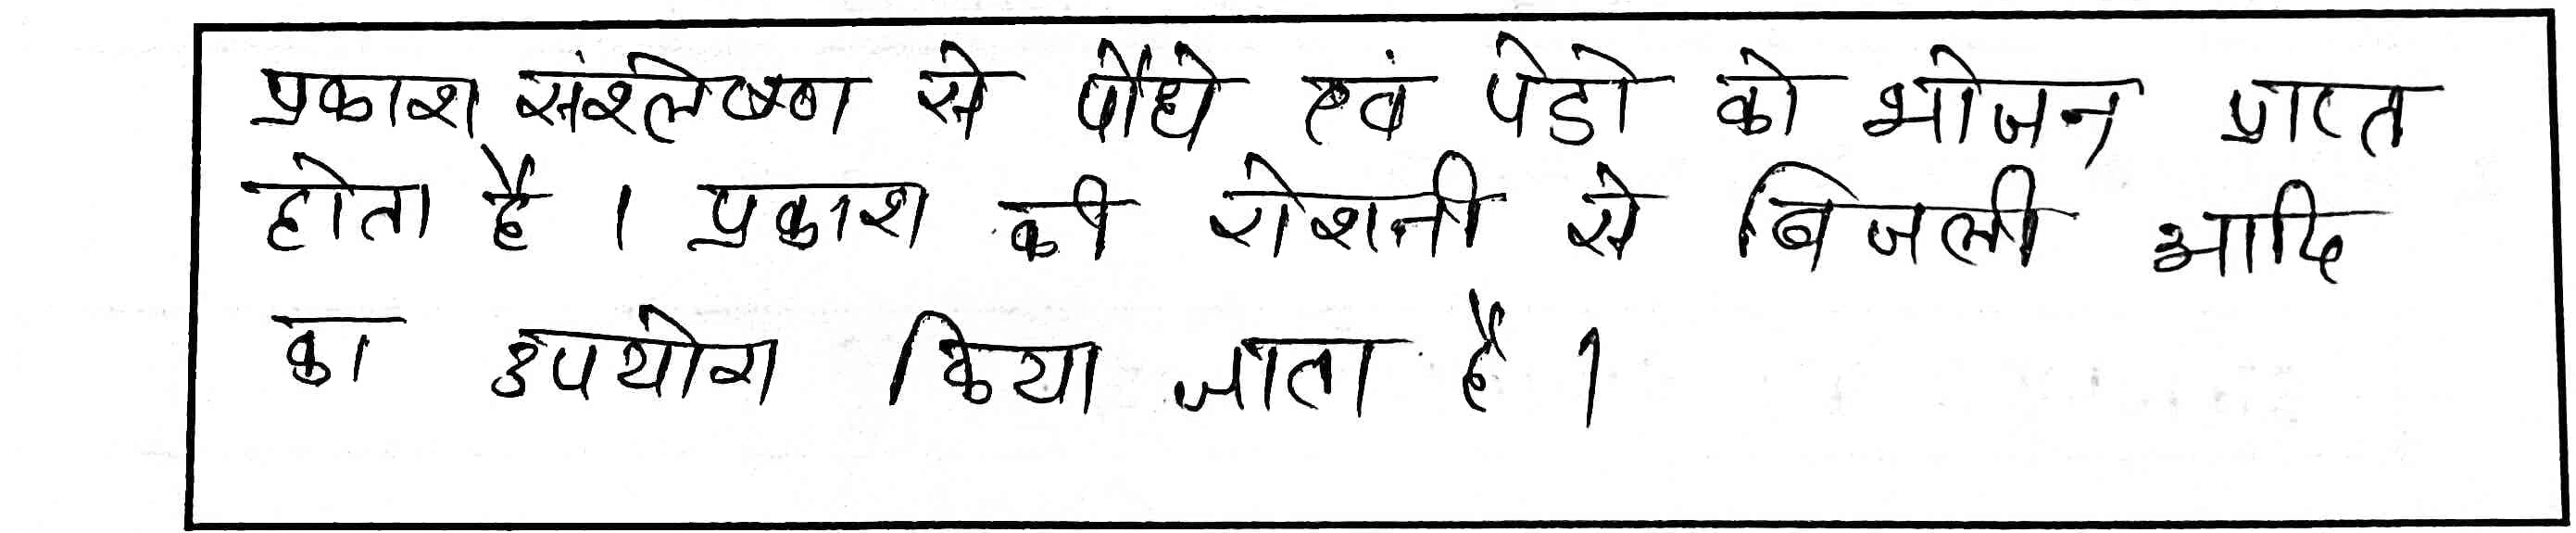 प्रकाश संश्लेषण से पौधे एवं पेडो को भोजन प्राप्त
होता है । प्रकाश की रोशनी से बिजली आदि
का उपयोग किया जाता है ।